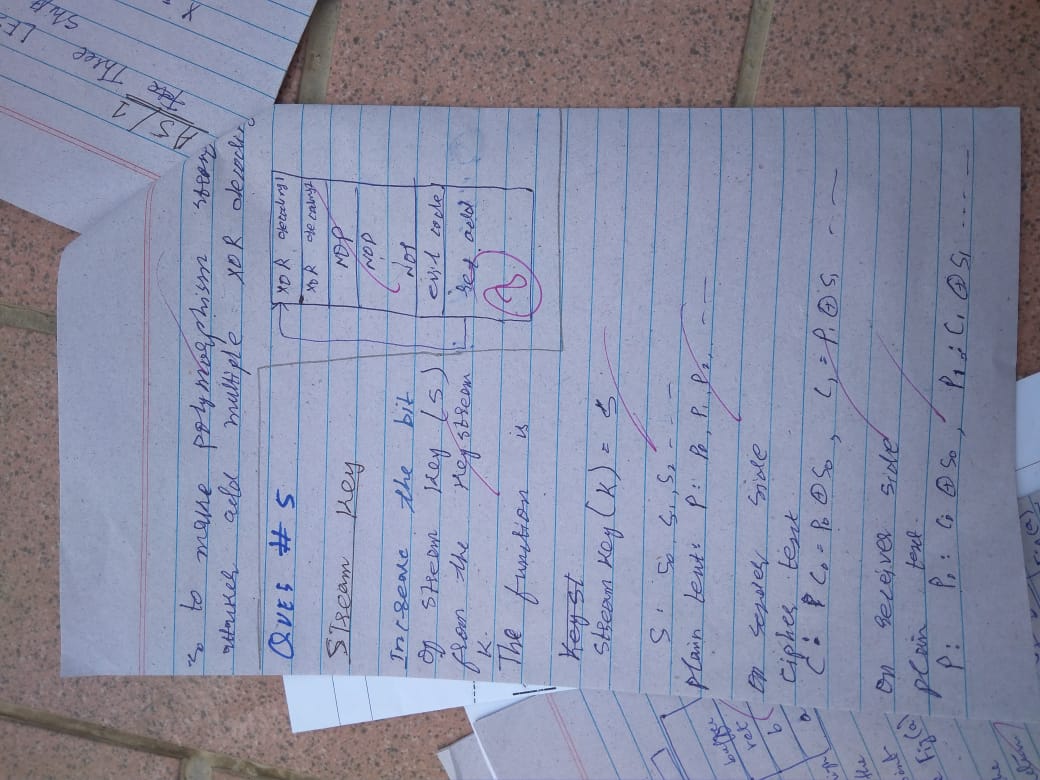 so to make polymorphism strong
attacker add multiple XOR decoder
XOR decoding
XOR decoding
NOP
NOP
NOP
evil code
ret add
2
QUES # 5
Stream Key
Increase the bit
of stream key (S)
from the keystream
K.
The function is
Key St
Stream key (K) = S
S: S0, S1, S2 - - - -
Plain text: P: P0, P1, P2, - - -
On sender side
cipher text
C: C0 = P0 ⊕ S0, C1 = P1 ⊕ S1 - - -
On receiver side
plain text
P: P0: C0 ⊕ S0, P1: C1 ⊕ S1 - - - -
AS/1
Three
Ship
X
Fig(a)
ret
b
a
the